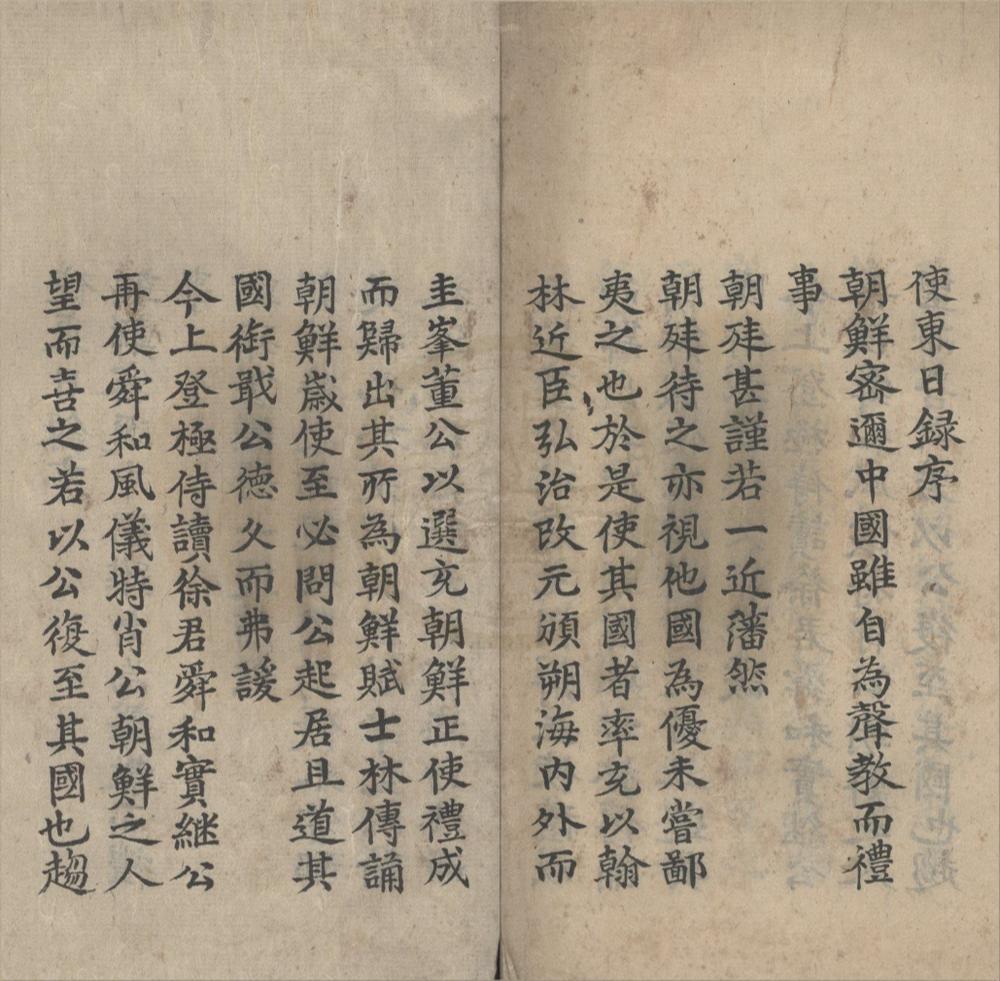 使東日録序
朝鮮密邇中國雖自為聲教而禮
事
朝廷甚謹若一近藩然
朝廷待之亦視他國為優未嘗鄙
夷之也於是使其國者率充以翰
林近臣弘治改元頒朔海内外而
圭峯董公以選充朝鮮正使禮成
而歸出其所為朝鮮賦士林傳誦
朝鮮歲使至必問公起居且道其
國銜戢公德久而弗諼
今上登極侍讀徐君舜和實継公
再使舜和風儀特肖公朝鮮之人
望而喜之若以公復至其國也趨